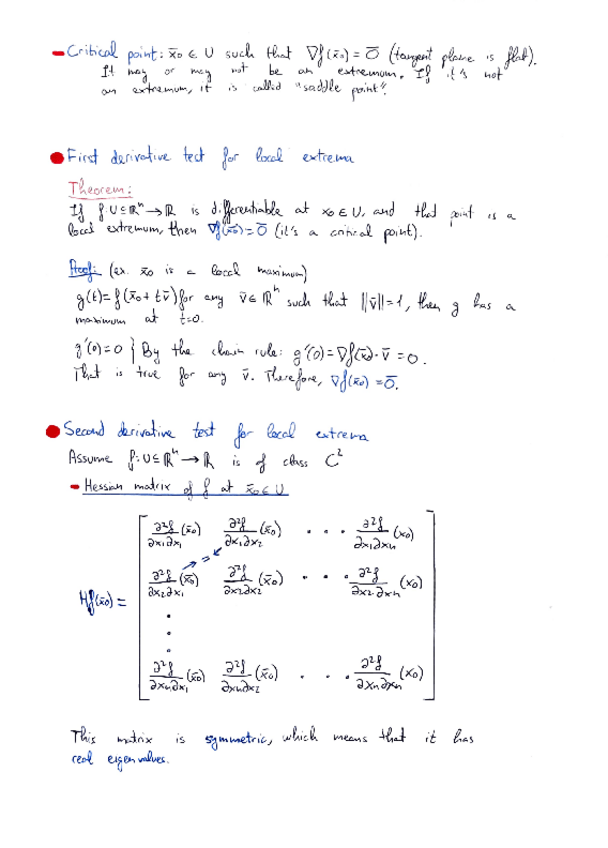 Critical point: x̄₀ ∈ U such that ∇f(x̄₀) = 0̄ (tangent plane is flat).
It may or may not be an extremum. If it's not
an extremum, it is called "saddle point".
First derivative test for local extrema
Theorem:
If f: U ⊆ ℝⁿ → ℝ is differentiable at x₀ ∈ U, and that point is a
local extremum, then ∇f(x̄₀) = 0̄ (it's a critical point).
Proof: (ex. x̄₀ is a local maximum)
g(t) = f(x̄₀ + tv̄) for any v̄ ∈ ℝⁿ such that ||v̄|| = 1, then g has a
maximum at t=0.
g'(0) = 0 } By the chain rule: g'(0) = ∇f(x̄₀)·v̄ = 0.
That is true for any v̄. Therefore, ∇f(x̄₀) = 0̄.
Second derivative test for local extrema
Assume f: U ⊆ ℝⁿ → ℝ is of class C²
Hessian matrix of f at x̄₀ ∈ U
∂²f/∂x₁∂x₁ (x̄₀) ∂²f/∂x₁∂x₂ (x̄₀) · · · ∂²f/∂x₁∂xₙ (x₀)
=
Hf(x̄₀) = ∂²f/∂x₂∂x₁ (x̄₀) ∂²f/∂x₂∂x₂ (x̄₀) · · · ∂²f/∂x₂∂xₙ (x₀)
·
·
·
∂²f/∂xₙ∂x₁ (x̄₀) ∂²f/∂xₙ∂x₂ (x̄₀) · · · ∂²f/∂xₙ∂xₙ (x₀)
This matrix is symmetric, which means that it has
real eigenvalues.